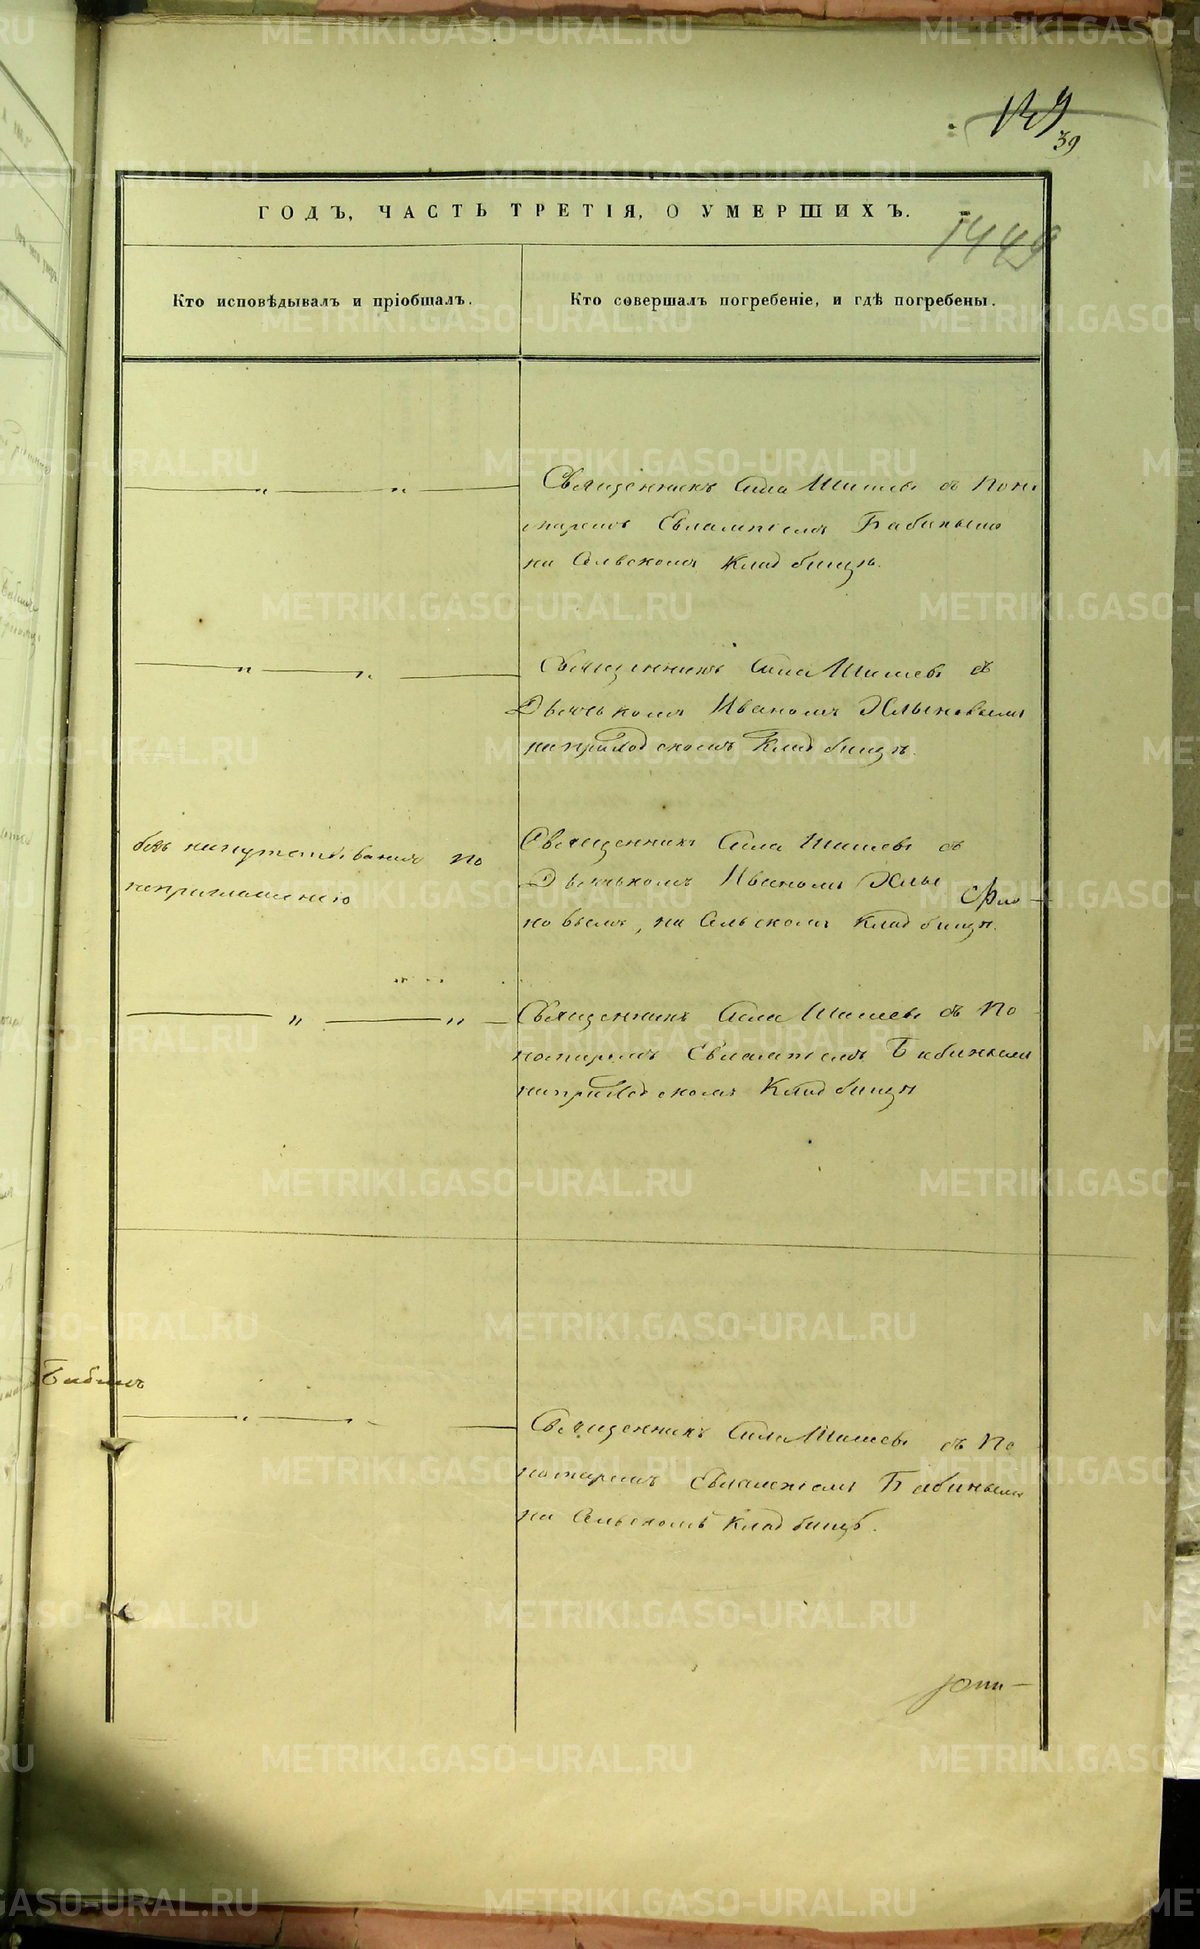 39
1449
ГОДЪ, ЧАСТЬ ТРЕТІЯ, О УМЕРШИХЪ.
Кто исповѣдывалъ и пріобщалъ.
Кто совершалъ погребеніе, и гдѣ погребены.
Священникъ Сила Шишевъ съ Поно
маремъ Евлампіемъ Бабинымъ
на Сельскомъ Кладбищѣ.
Священникъ Сила Шишевъ съ
Дьячькомъ Иваномъ Хлыновымъ
на приходскомъ Кладбищѣ.
безъ напутствованія по
неприглашенію
Священникъ Сила Шишевъ съ
Дьячькомъ Иваномъ Хлы
новымъ, на Сельскомъ Кладбищѣ.
Священникъ Сила Шишевъ съ По
номаремъ Евлампіемъ Бабинымъ
на приходскомъ Кладбищѣ
Бабинъ
Священникъ Сила Шишевъ съ По
номаремъ Евлампіемъ Бабинымъ
на Сельскомъ Кладбищѣ.
METRIKI.GASO-URAL.RU